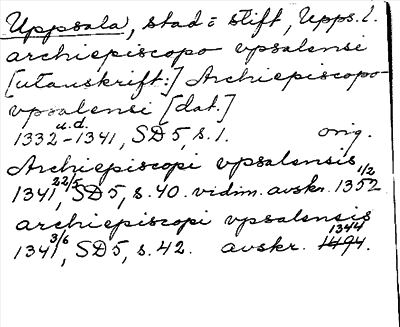 Uppsala, stad o stift, Upps. l.
archiepiscopo vpsalensi
[utanskrift:] Archiepiscopo
vpsalensi [dat.]
1332 u.d. - 1341, SD5, s. 1. orig.
Archiepiscopi vpsalensis
1341 22/5, SD5, s. 40. vidim. avskr. 1352 1/2
archiepiscopi vpsalensis
1341 3/6, SD5, s. 42. avskr. 1494. 1344